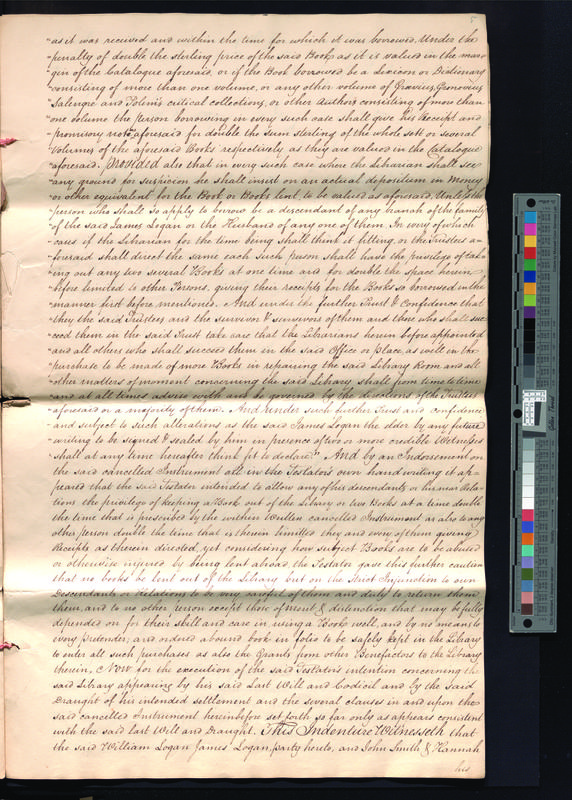 "as it was received and within the time for which it was borrowed. Under the
"penalty of double the sterling price of the said Book as it is valued in the mar=
"gin of the Catalogue aforesaid, or if the Book borrowed be a Lexicon or Dictionary
"consisting of more than one volume, or any other volume of Grævius, Gronovius
"Salengre and Polini's critical collections, or other Authors consisting of more than
"one volume the person borrowing in every such case shall give his Receipt and
"promissory note aforesaid for double the sum sterling of the whole sett or several
"Volumes of the aforesaid Books respectively as they are valued in the Catalogue
"aforesaid. Provided also that in every such case where the Librarian shall see
"any ground for suspicion he shall insist on an actual depositum in Money
"or other equivalent for the Book or Books lent, to be valued as aforesaid, Unless the
"person who shall so apply to borrow be a descendant of any branch of the family
"of the said James Logan or the Husband of any one of them. In every of which
"cases if the Librarian for the time being shall think it fitting, or the Trustees a=
"foresaid shall direct the same each such person shall have the privilege of tak=
"ing out any two several Books at one time and for double the space herein
"before limited to other Persons, giving their receipts for the Books so borrowed in the
"manner first before mentioned. And under the further Trust & Confidence that
"they the said Trustees and the survivor & survivors of them and those who shall suc=
"ceed them in the said Trust take care that the Librarians herein before appointed
"and all others who shall succeed them in the said Office or Place, as well in the
"purchase to be made of more Books in repairing the said Library Room and all
"other matters of moment concerning the said Library shall from time to time
"and at all times advise with and be governed by the directions of the Trustees
"aforesaid or a majority of them. And under such further Trust and confidence
"and subject to such alterations as the said James Logan the elder by any future
"writing to be signed & sealed by him in presence of two or more credible Witnesses
"shall at any time hereafter think fit to declare." And by an Indorsement on
the said cancelled Instrument all in the Testator's own hand writing it ap=
peared that the said Testator intended to allow any of his descendants or his near Rela=
tions the privilege of keeping a Book out of the Library or two Books at a time double
the time that is prescribed by the within Written cancelled Instrument as also to any
other person double the time that is therein limitted they and every of them giving
Receipts as therein directed, yet considering how subject Books are to be abused
or otherwise injured by being lent abroad, the Testator gave this further caution
that no books be lent out of the Library but on the Strict Injunction to own
Descendants or Relations to be very careful of them and duly to return them
them, and to no other person except those of merit & distinction that may be fully
depended on for their skill and care in using a Book well, and by no means to
every pretender, and ordered a bound book in folio to be safely kept in the Library
to enter all such purchases as also the Grants from other Benefactors to the Library
therein. Now for the execution of the said Testator's intention concerning the
said Library appearing by his said Last Will and Codicil and by the said
Draught of his intended settlement and the several clauses in and upon the
said cancelled Instrument hereinbefore set forth so far only as appears consistent
with the said last Will and Draught. This Indenture Witnesseth that
the said William Logan James Logan, party hereto, and John Smith & Hannah
his